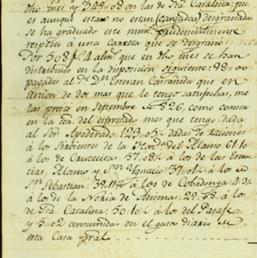 dho mes y 349 08 en las de Sta. Catalina; pu-
es aunque estan no estan (cargadas) desgranada
se ha graduado este num. prudencialmente
respecto a una carreta que se desgrano
Por 308 f. 4 alms. que en dho mes se han
distribuido en la disposicion siguiente: 98.00
pagadas a Dn. Castañeda que en
union de dos mas que le tengo satisfechas, me
las prestó en Septiembre de 826, como consta
en la del espresado mes que tengo dada
al Sor. Apoderado: 123.05 dadas de raciones
á los Sirvientes de la Hacda. del Alamo 61.10
á los de Crucecitas: 37.08 á los de las Estan-
cias, Alamo y Sn. Ignacio: 37 á los de
Sn. Sebastian: á los de Cobadonga
á los de la Noria de Animas: 29. á los
de Sta. Catalina: á los del Pasaje
y 5.02 consumidas en el gasto diario de
esta Casa pral.